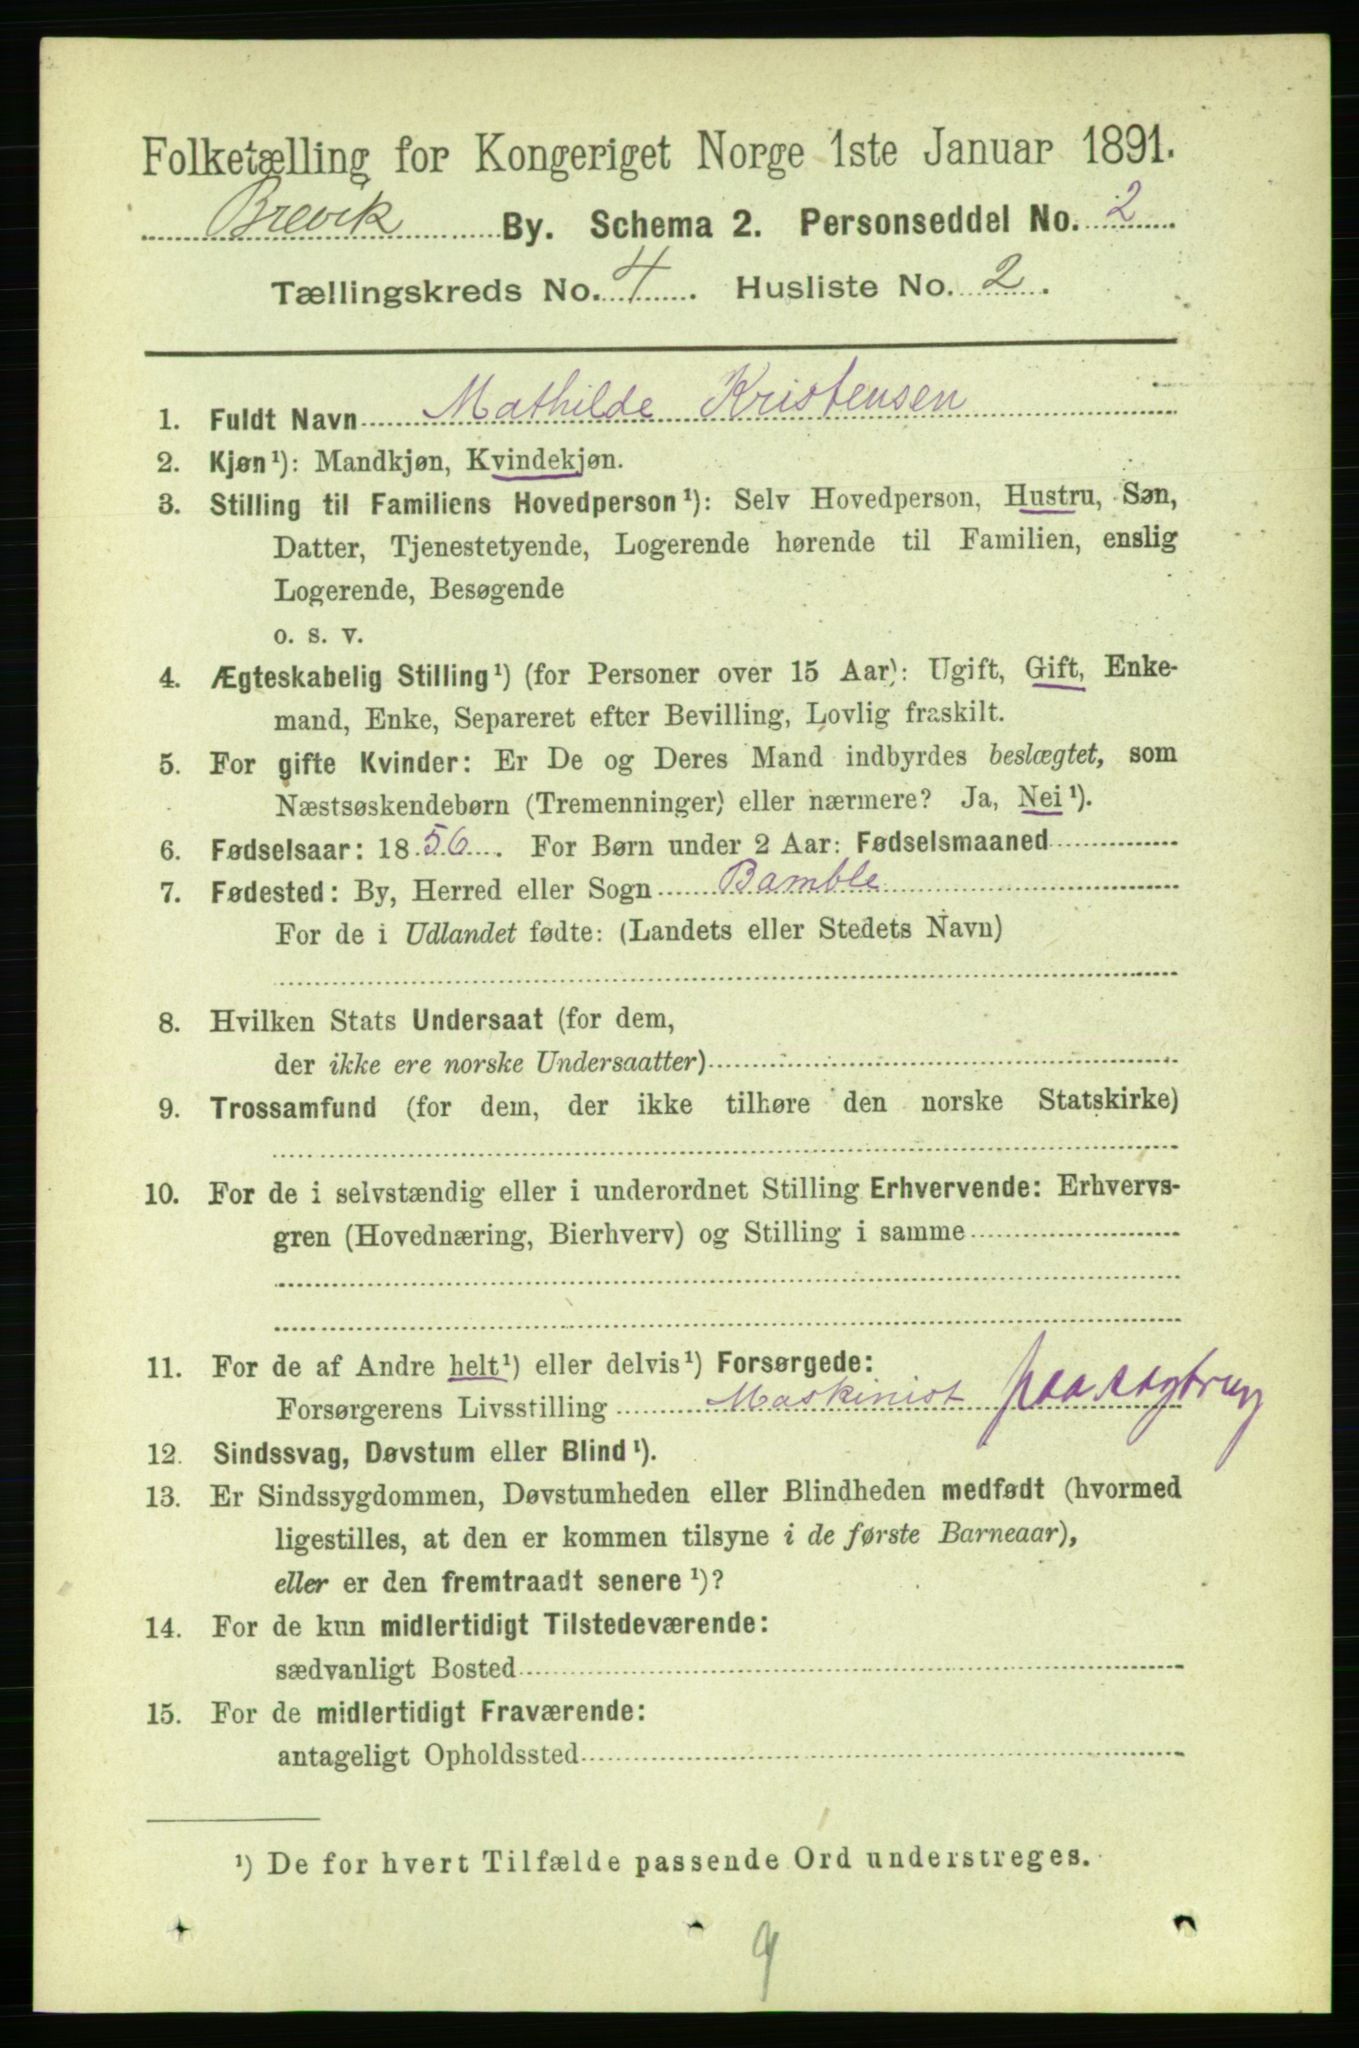 Folketælling for Kongeriget Norge 1ste Januar 1891.
Brevik By. Schema 2. Personseddel No. 2
Tællingskreds No. 4. Husliste No. 2.
1. Fuldt Navn Mathilde Kristensen
2. Kjøn¹): Mandkjøn, Kvindekjøn.
3. Stilling til Familiens Hovedperson¹): Selv Hovedperson, Hustru, Søn,
Datter, Tjenestetyende, Logerende hørende til Familien, enslig
Logerende, Besøgende
o. s. v.
4. Ægteskabelig Stilling¹) (for Personer over 15 Aar): Ugift, Gift, Enke-
mand, Enke, Separeret efter Bevilling, Lovlig fraskilt.
5. For gifte Kvinder: Er De og Deres Mand indbyrdes beslægtet, som
Næstsøskendebørn (Tremenninger) eller nærmere? Ja, Nei¹).
6. Fødselsaar: 1856. For Børn under 2 Aar: Fødselsmaaned
7. Fødested: By, Herred eller Sogn Bamble
For de i Udlandet fødte: (Landets eller Stedets Navn)
8. Hvilken Stats Undersaat (for dem,
der ikke ere norske Undersaatter)
9. Trossamfund (for dem, der ikke tilhøre den norske Statskirke)
10. For de i selvstændig eller i underordnet Stilling Erhvervende: Erhvervs-
gren (Hovednæring, Bierhverv) og Stilling i samme
11. For de af Andre helt¹) eller delvis¹) Forsørgede:
Forsørgerens Livsstilling Maskinist paa
12. Sindssvag, Døvstum eller Blind¹).
13. Er Sindssygdommen, Døvstumheden eller Blindheden medfødt (hvormed
ligestilles, at den er kommen tilsyne i de første Barneaar),
eller er den fremtraadt senere¹)?
14. For de kun midlertidigt Tilstedeværende:
sædvanligt Bosted
15. For de midlertidigt Fraværende:
antageligt Opholdssted
¹) De for hvert Tilfælde passende Ord understreges.
9